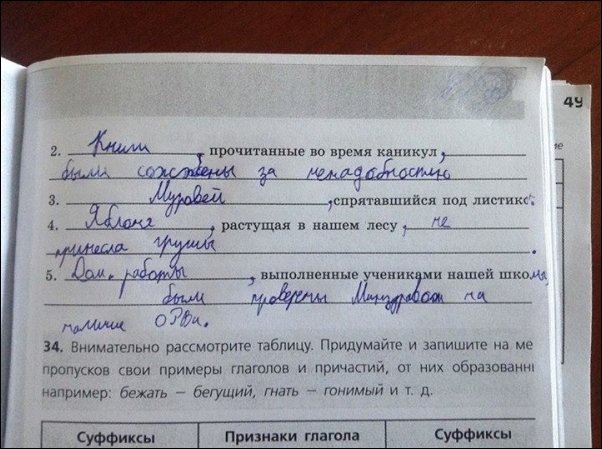 49
2. Книги, прочитанные во время каникул,
были сожжены за ненадобностью
3. Муравей, спрятавшийся под листик.
4. Яблоня, растущая в нашем лесу, не
принесла грушы.
5. Дом. работы, выполненные учениками нашей школы,
были проверены Минздравом на
наличие ОРВи.
34. Внимательно рассмотрите таблицу. Придумайте и запишите на ме
пропусков свои примеры глаголов и причастий, от них образованн
например: бежать — бегущий, гнать — гонимый и т. д.
Суффиксы Признаки глагола Суффиксы